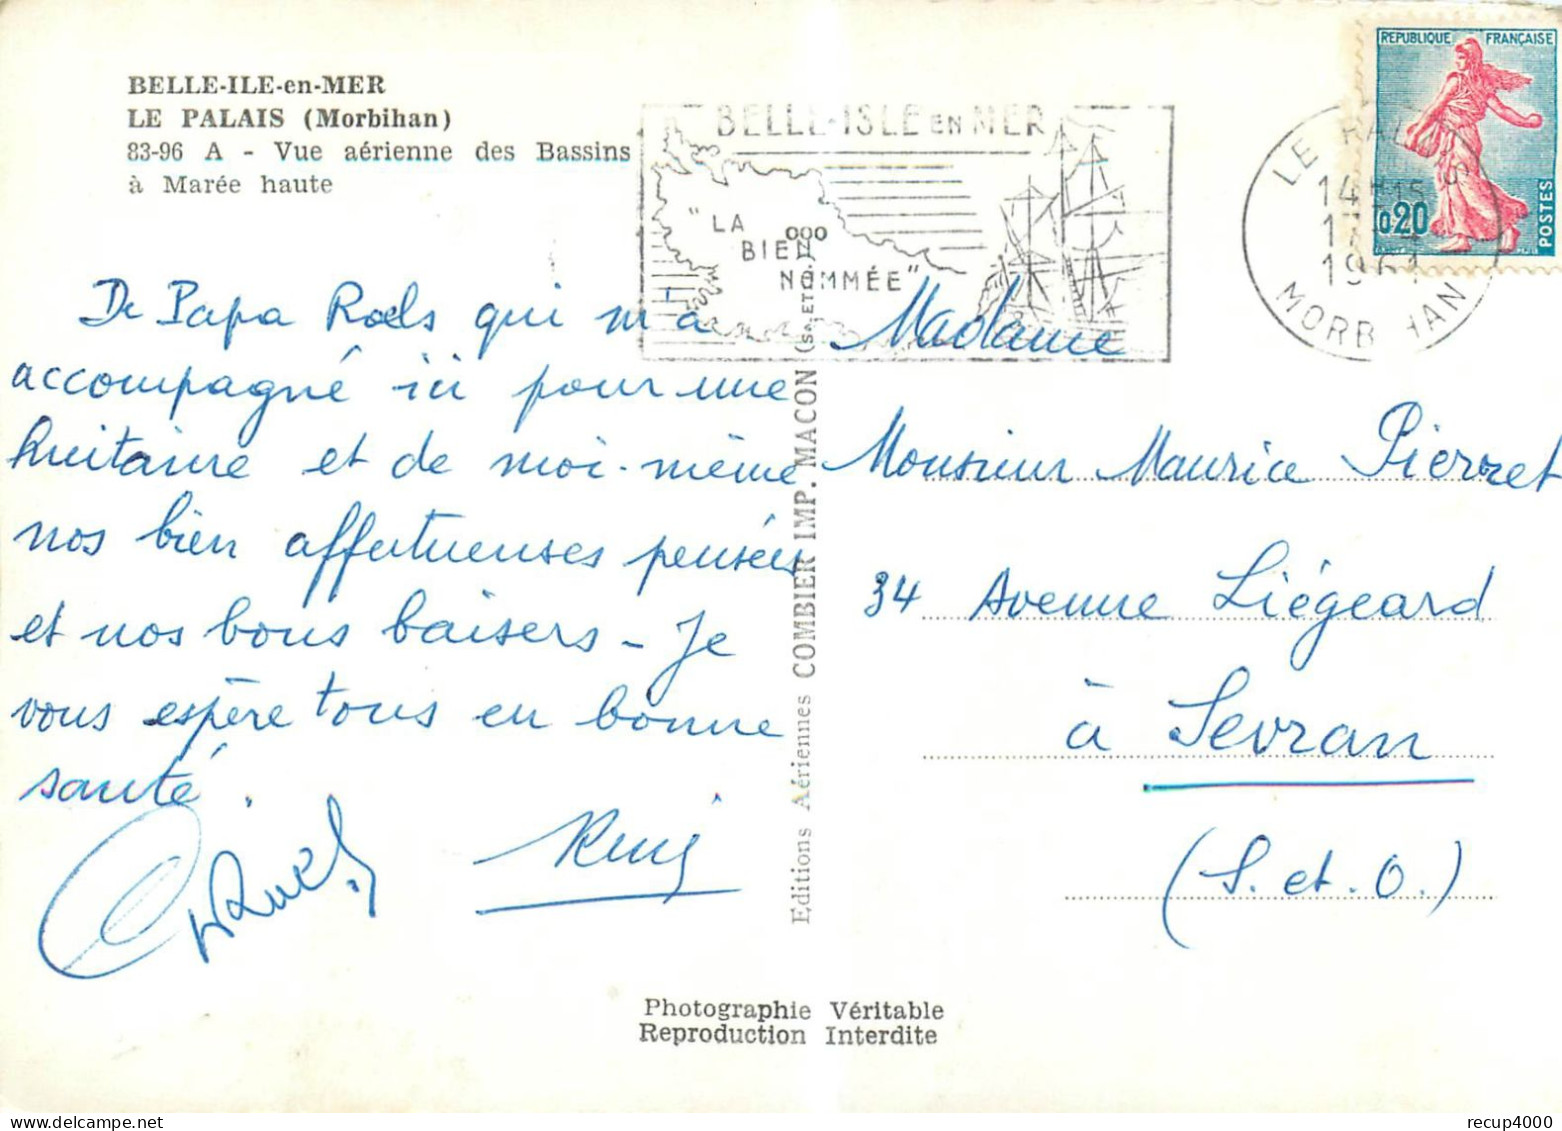 BELLE-ILE-en-MER
LE PALAIS (Morbihan)
83-96 A - Vue aérienne des Bassins
à Marée haute
BELLE-ISLE EN MER
"LA
BIEN
NOMMÉE"
REPUBLIQUE FRANÇAISE
0,20
POSTES
LE PALAIS
14H15
1961
MORBIHAN
De Papa Roels qui m'a
accompagné ici pour une
huitaine et de moi-même
nos bien affectueuses pensées
et nos bons baisers - Je
vous espère tous en bonne
santé.
Editions Aériennes COMBIER IMP. MACON (S. ET L.)
Madame
Monsieur Maurice Pierret
34 Avenue Liégeard
à Sevran
(S. et. O.)
Photographie Véritable
Reproduction Interdite
recup4000